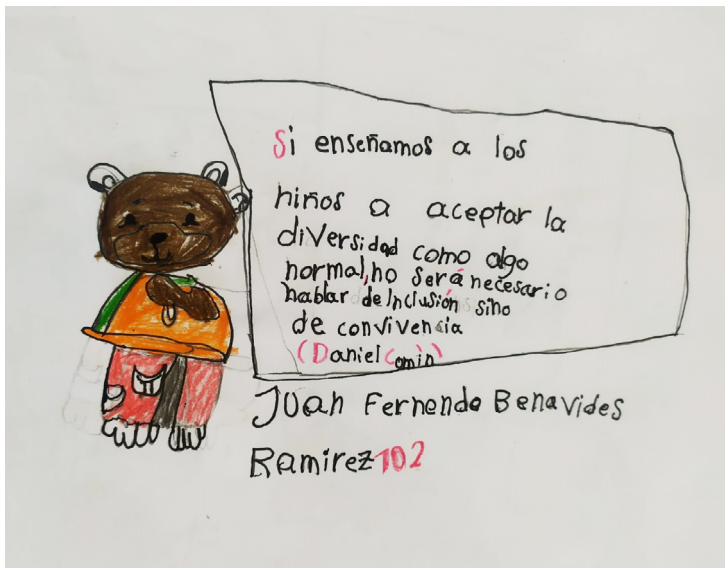 Si enseñamos a los
niños a aceptar la
diversidad como algo
normal, no será necesario
hablar de Inclusión sino
de convivencia
(Daniel Comín)
Juan Fernendo Benavides
Ramirez 102